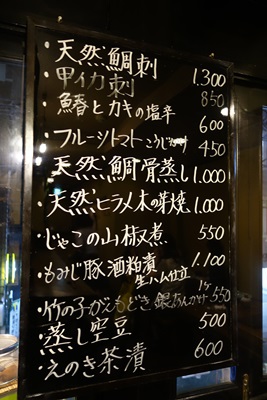 ・天然鯛刺 1.300
・甲イカ刺 850
・鰆とカキの塩辛 600
・フルーツトマト 450
・天然鯛骨蒸し 1.000
・天然ヒラメ木の芽焼 1.000
・じゃこの山椒煮 550
・もみじ豚酒粕漬 1.100
生ハム仕立
1ヶ
・竹の子がんもどき 銀あんかけ 550
・蒸し空豆 500
・えのき茶漬 600